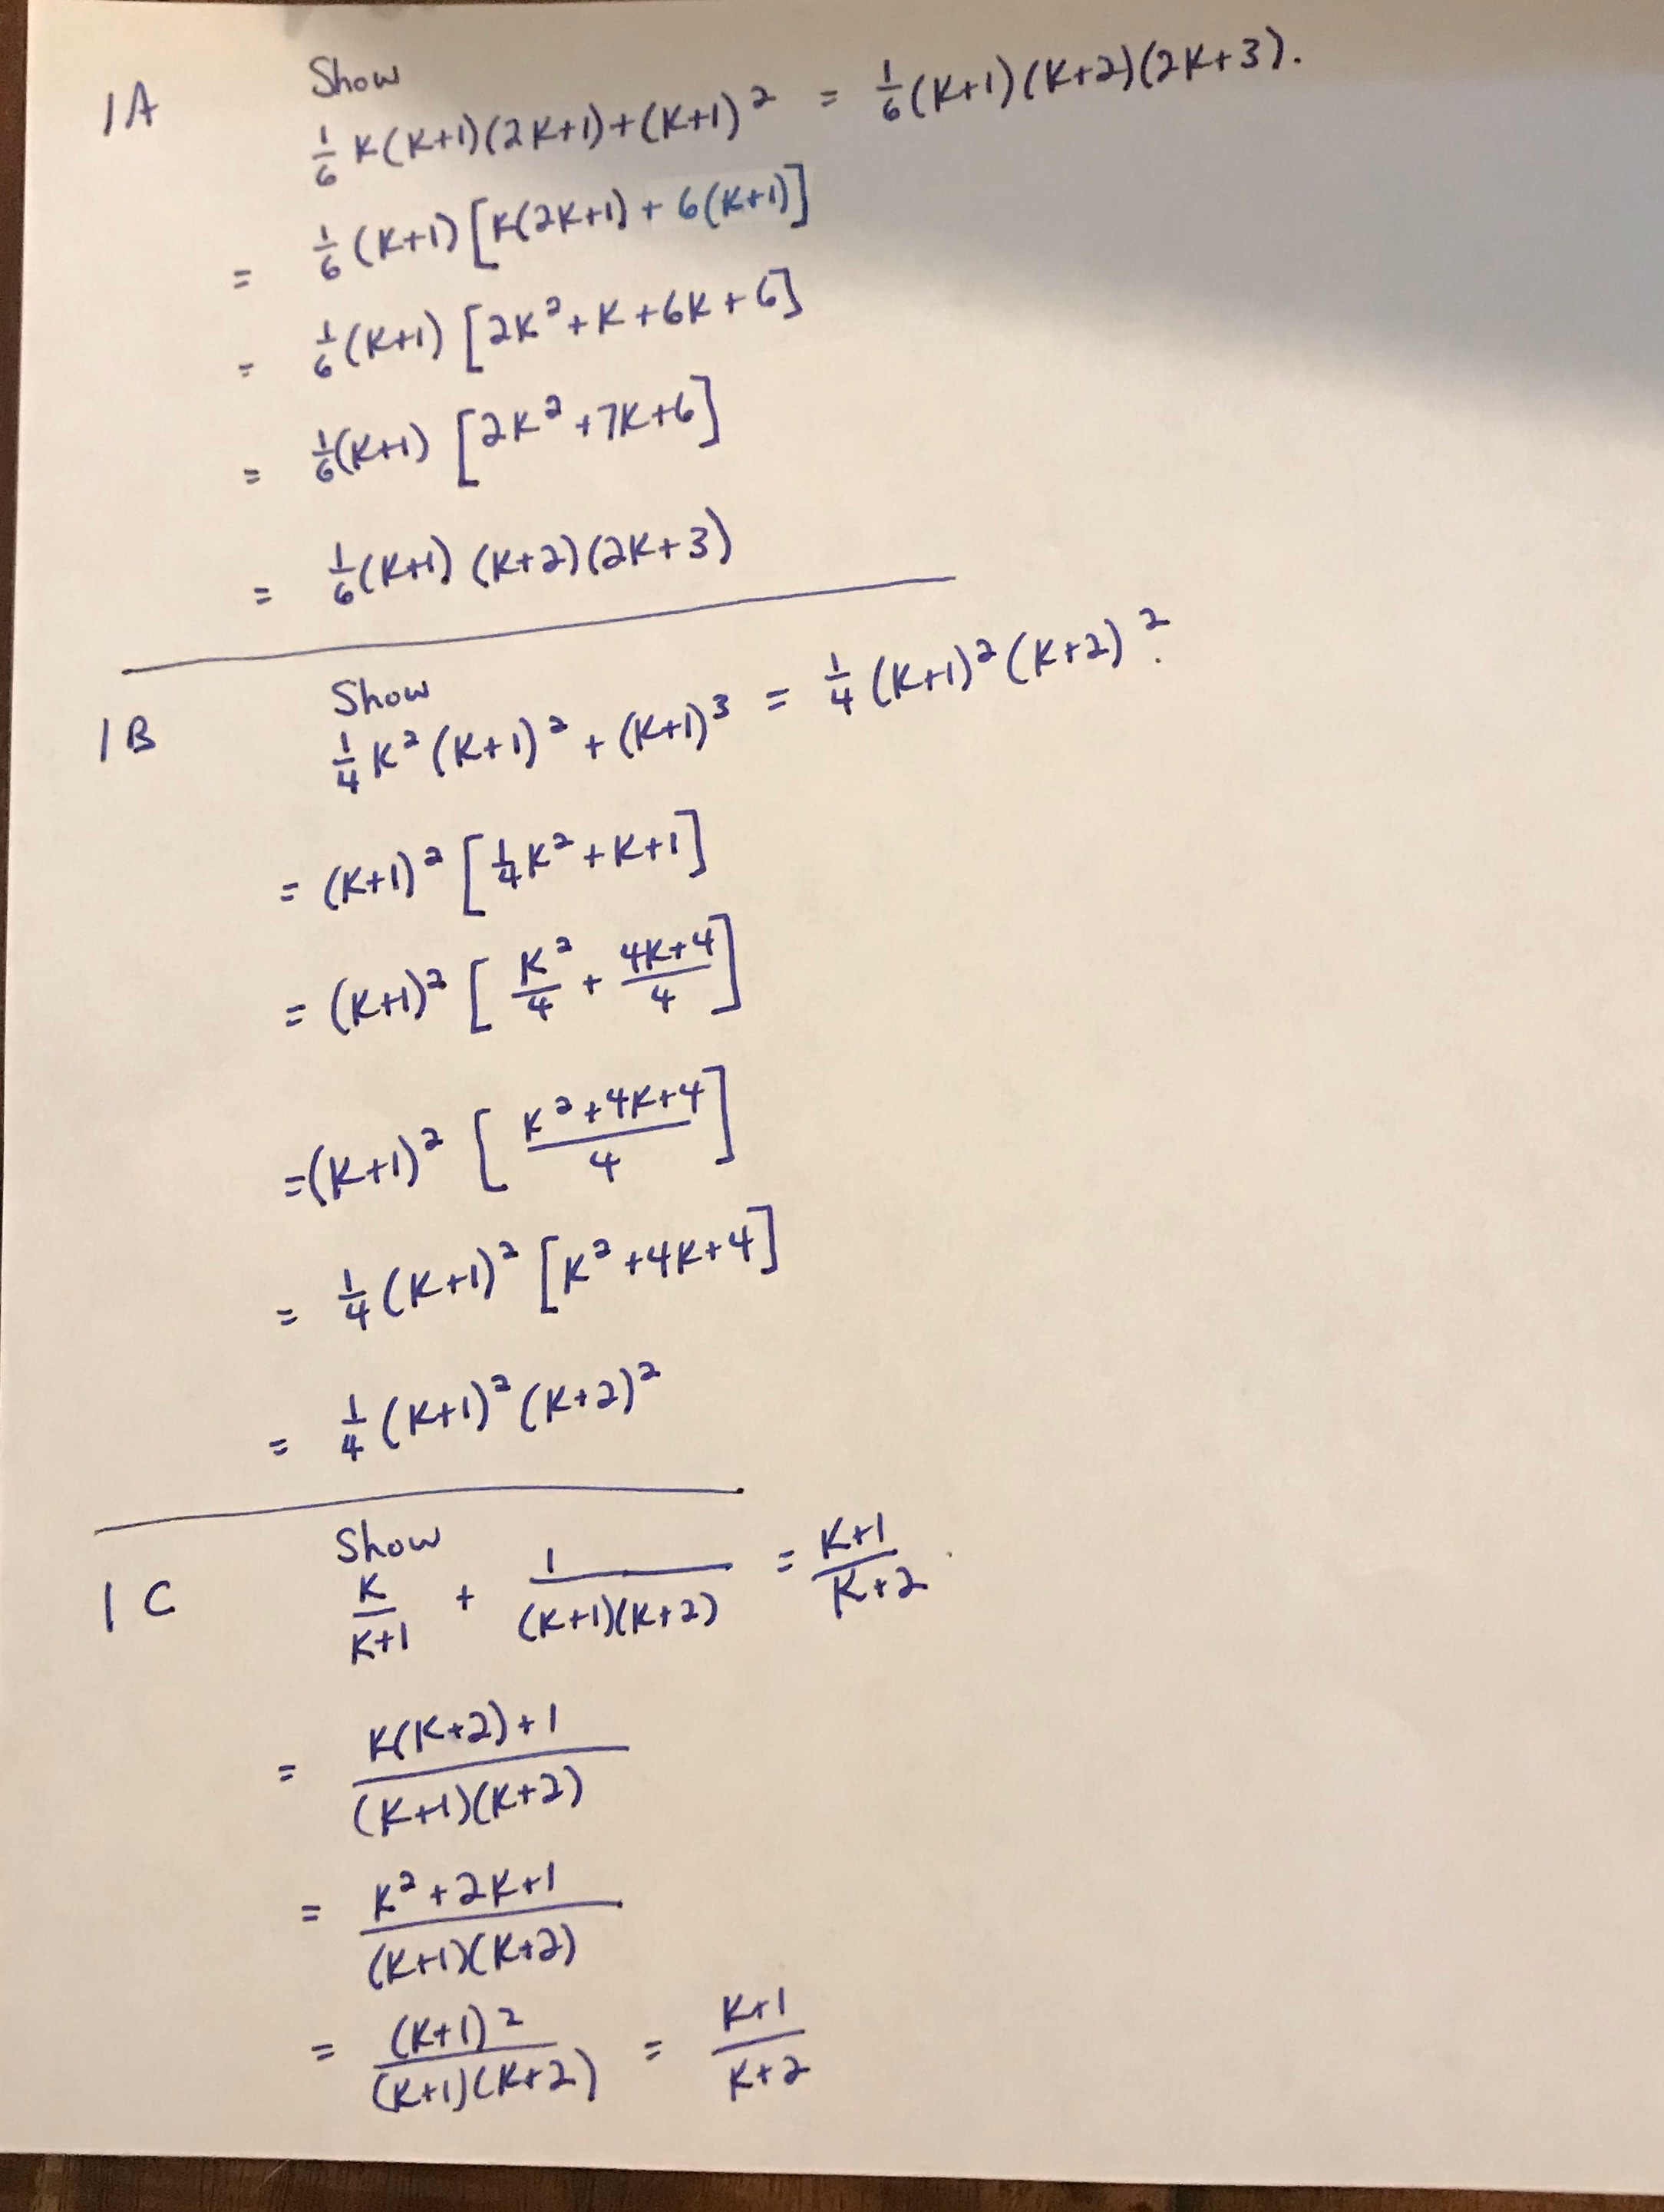 1A Show
1/6 K(K+1)(2K+1)+(K+1)² = 1/6(K+1)(K+2)(2K+3).
= 1/6(K+1)[K(2K+1) + 6(K+1)]
= 1/6(K+1)[2K²+K+6K+6]
= 1/6(K+1)[2K²+7K+6]
= 1/6(K+1)(K+2)(2K+3)
1B Show
1/4 K²(K+1)² + (K+1)³ = 1/4(K+1)²(K+2)².
= (K+1)²[1/4 K²+K+1]
= (K+1)²[K²/4 + (4K+4)/4]
=(K+1)²[(K²+4K+4)/4]
= 1/4(K+1)²[K²+4K+4]
= 1/4(K+1)²(K+2)²
1C Show
K/(K+1) + 1/((K+1)(K+2)) = (K+1)/(K+2).
= (K(K+2)+1)/((K+1)(K+2))
= (K²+2K+1)/((K+1)(K+2))
= (K+1)²/((K+1)(K+2)) = (K+1)/(K+2)